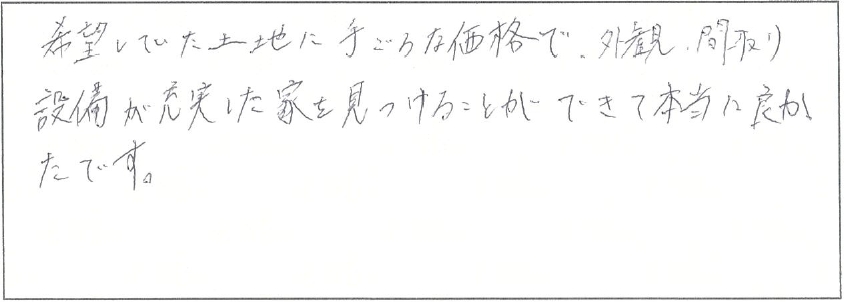 希望していた土地に手ごろな価格で、外観、間取り
設備が充実した家を見つけることができて本当に良か
たです。